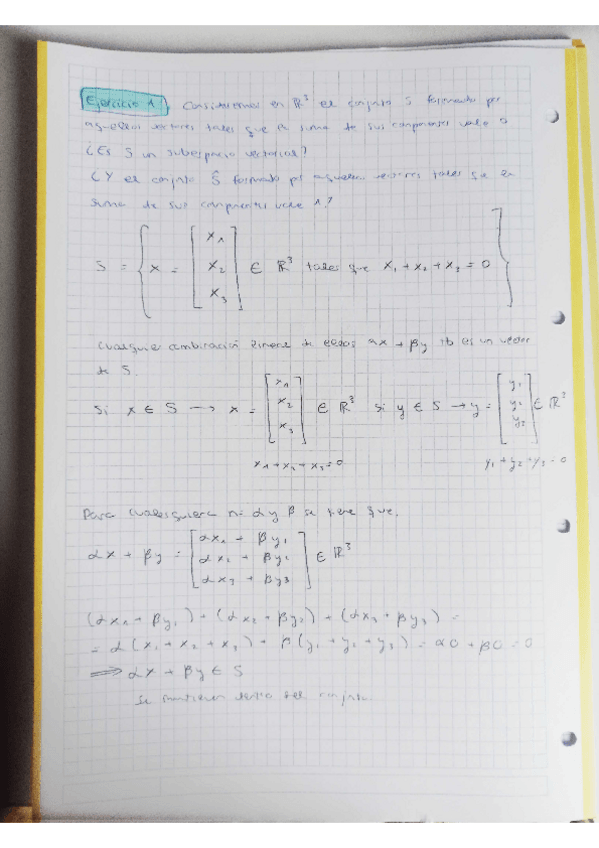 Ejercicio 1 Consideremos en ℝ³ el conjunto S formado por
aquellos vectores tales que la suma de sus componentes vale 0
¿Es S un subespacio vectorial?
¿Y el conjunto Ŝ formado por aquellos vectores tales que la
suma de sus componentes vale 1?
S = { x = [x₁ x₂ x₃] ∈ ℝ³ tales que x₁ + x₂ + x₃ = 0 }
Cualquier combinación lineal de ellos αx + βy tb es un vector
de S.
Si x ∈ S → x = [x₁ x₂ x₃] ∈ ℝ³ si y ∈ S → y = [y₁ y₂ y₃] ∈ ℝ³
x₁ + x₂ + x₃ = 0 y₁ + y₂ + y₃ = 0
Para cualesquiera nº α y β se tiene que,
αx + βy = [αx₁ + βy₁ αx₂ + βy₂ αx₃ + βy₃] ∈ ℝ³
(αx₁ + βy₁) + (αx₂ + βy₂) + (αx₃ + βy₃) =
= α(x₁ + x₂ + x₃) + β(y₁ + y₂ + y₃) = α0 + β0 = 0
⟹ αx + βy ∈ S
Se mantienen dentro del conjunto.